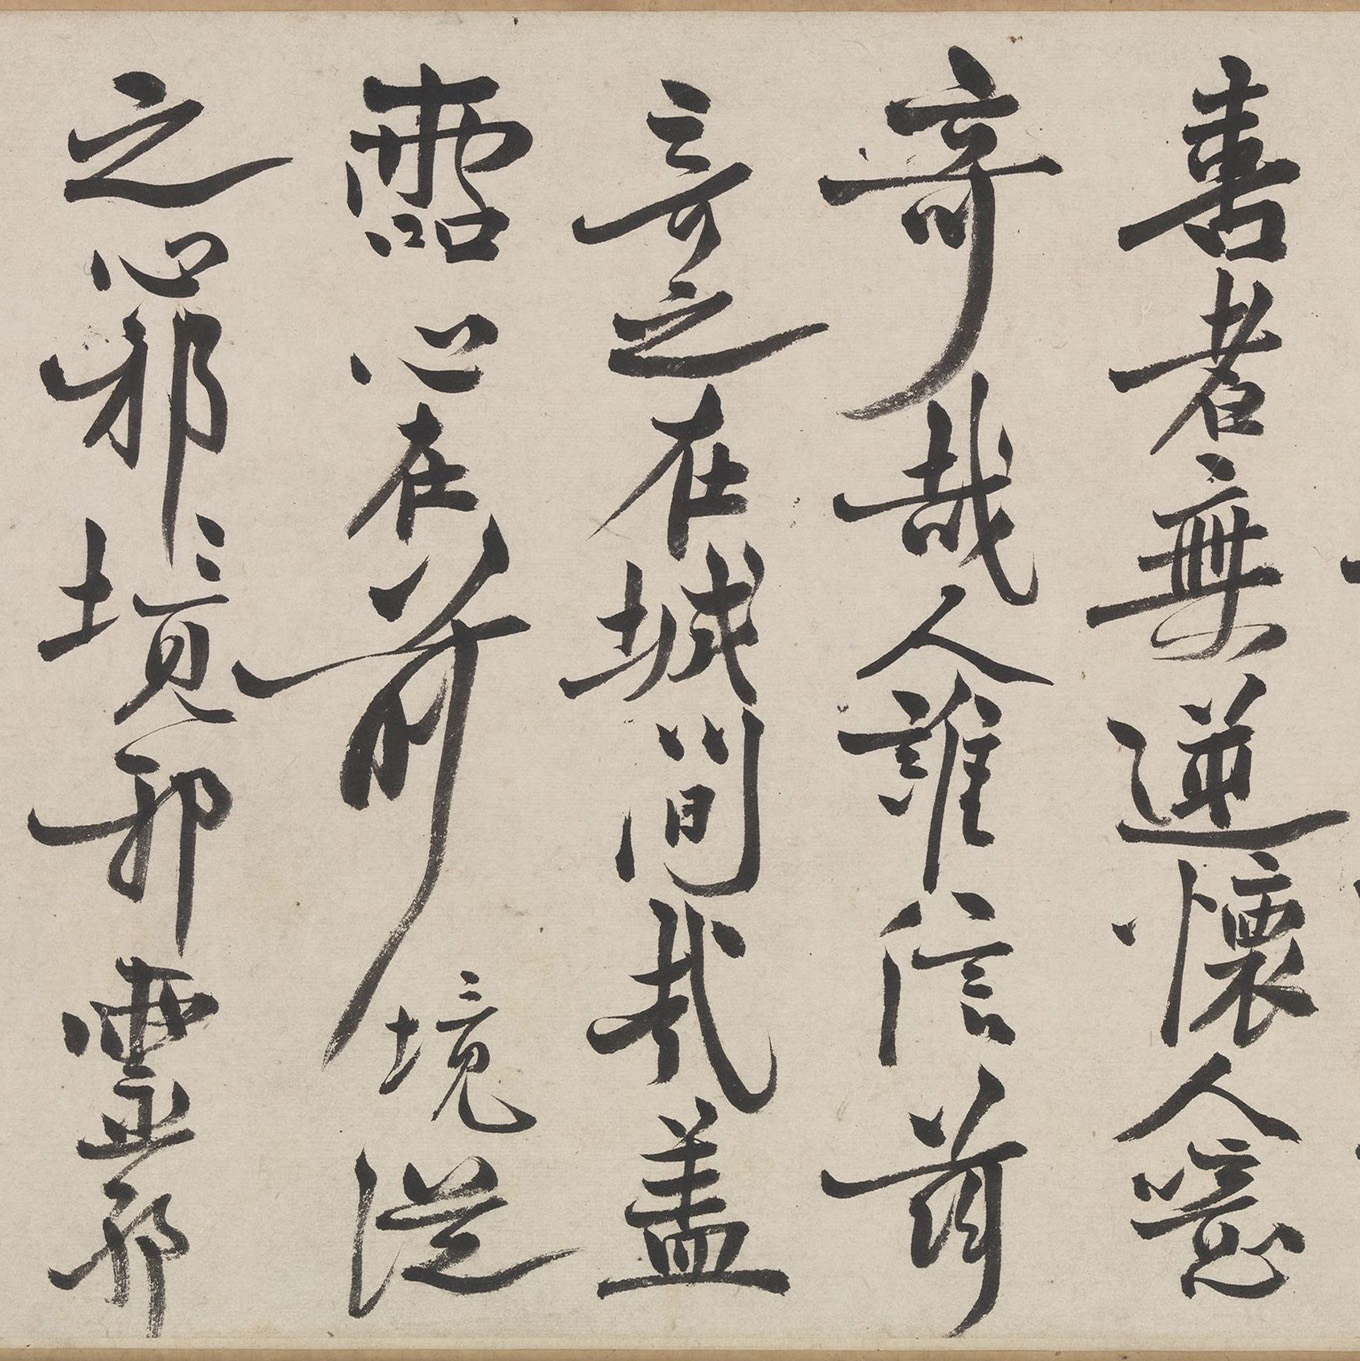 者無逆懷人
奇哉人誰信
之在城間哉蓋
靈心在前境從
之心邪境邪靈邪